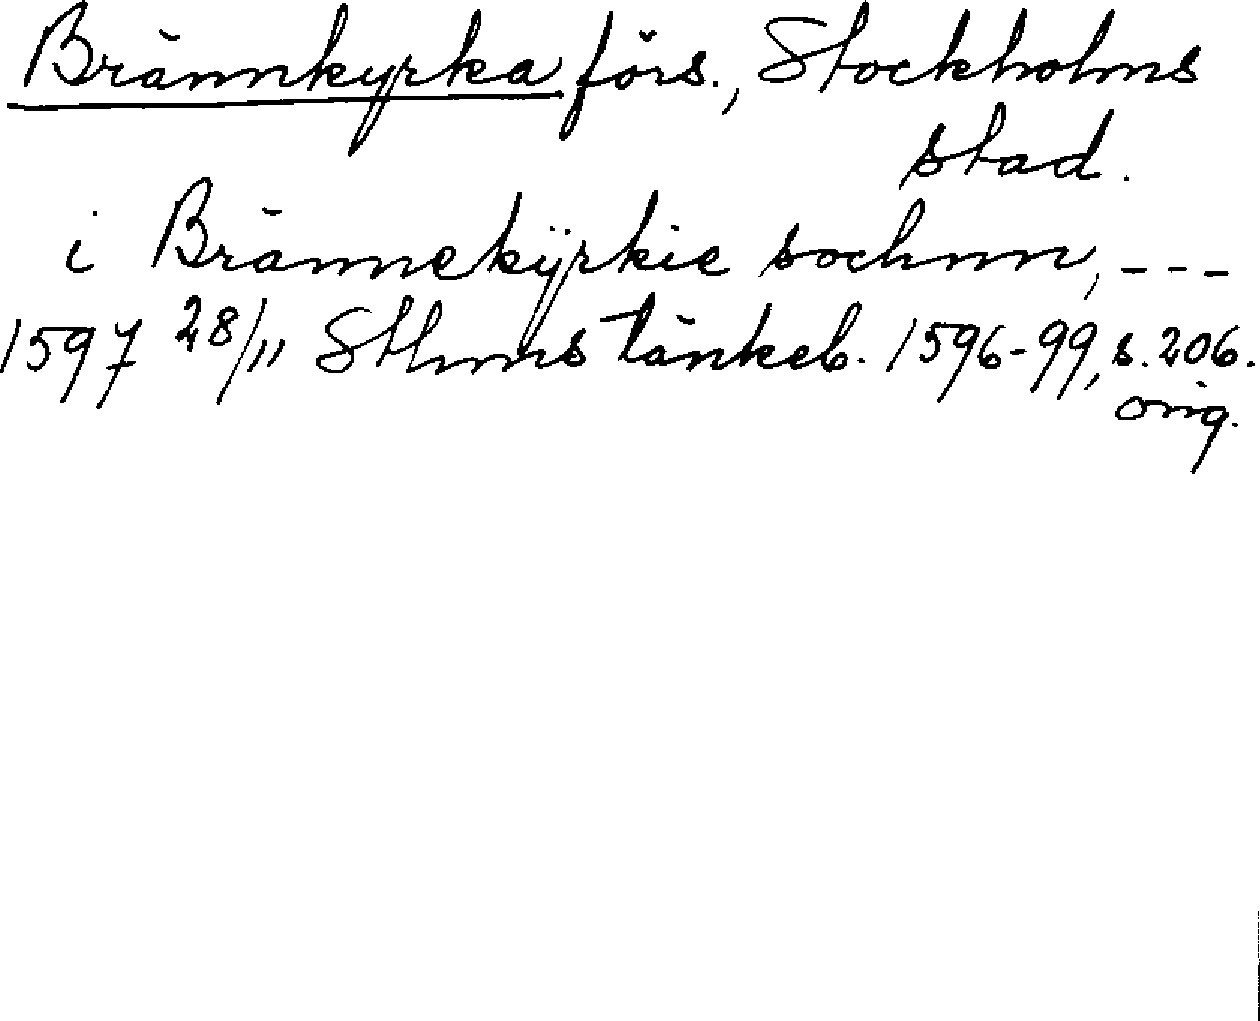 Brännkyrka förs., Stockholms
stad.
i Brännekÿrkie sochnn, ---
1597 28/11 Sthms tänkeb. 1596-99, s. 206.
orig.